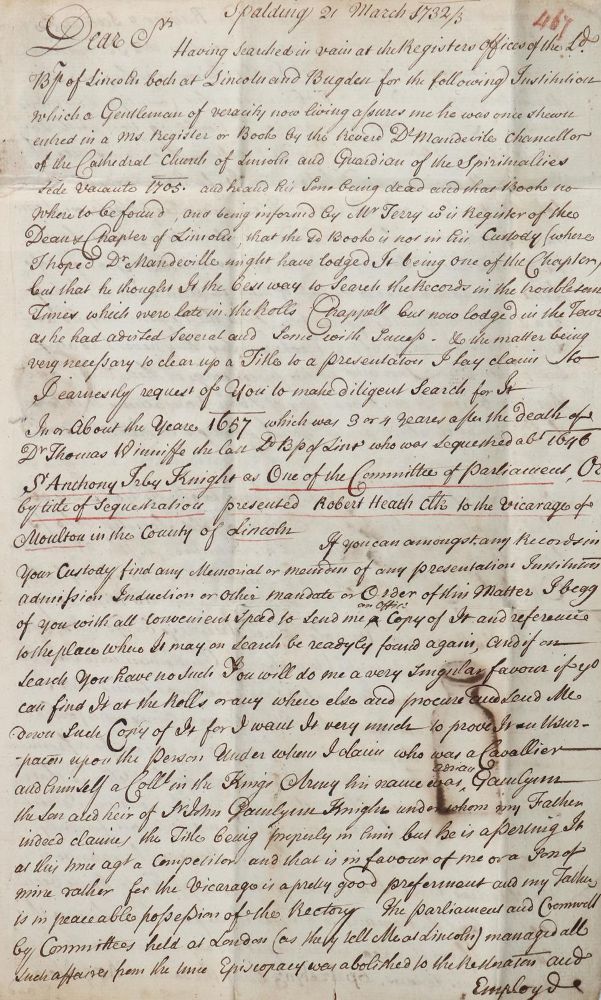 Spalding 21 March 1732/3
467
Dear Sr.
Having searched in vain at the Registers Offices of the Ld.
Bp. of Lincoln both at Lincoln and Bugden for the following Institution
which a Gentleman of veracity now living assures me he was once shewn
entred in a Ms Register or Book by the Reverd Dr. Mandevile Chancellor
of the Cathedral Church of Lincoln and Guardian of the Spiritualties
sede vacante 1705. and heard his Sons being dead and that Book no
where to be found, and being informed by Mr Terry wo is Register of the
Dean & Chapter of Lincoln, that the sd Book is not in his Custody (where
I hoped Dr. Mandeville might have lodged It being one of the Chapter)
but that he thought It the best way to Search the Records in the troublesome
Times which were late in the Rolls Chappell but now lodged in the Tower
as he had advised Several and Some with Success. & the matter being
very necessary to clear up a Title to a presentation I lay claim to
I earnestly request of You to make diligent Search for It
In or About the Yeare 1657 which was 3 or 4 Yeares after the death of
Dr Thomas Winniffe the last Ld Bp of Linc who was sequestred abt. 1646
Sr. Anthony Irby Knight as One of the Committee of Parliament, Or
by title of Sequestration presented Robert Heath Clk to the Vicarage of
Moulton in the County of Lincoln
If you can amongst any Records in
Your Custody find any Memorial or memdm of any presentation Institution
admission Induction or Other mandate or Order of this Matter I begg
of You with all convenient Speed to Send me an Office Copy of It and reference
to the place where It may on Search be readyly found again, And if on
Search You have no such You will do me a very Singular favour if yo
can find It at the Rolls or any where else and procure and Send Me
down Such Copy of It for I want It very much to prove It an Usur-
pation upon the Person Under whom I claim who was a Cavallier
and himself a Coll. in the Kings Army his name was Gamlyn
the Son and heir of Sr. John Gamlyn Knight under whom my Father
indeed claimes, the Title being properly in him but he is asserting It
at this time agt a Competitor and that is in favour of me or a Son of
mine rather for the Vicarage is a pretty good preferment and my Father
is in peaceable possession of the Rectory The Parliament and Cromwell
by Committees held at London (as they tell Me at Lincoln) managed all
such affaires from the time Episcopacy was abolished to the Restoration and
Employd